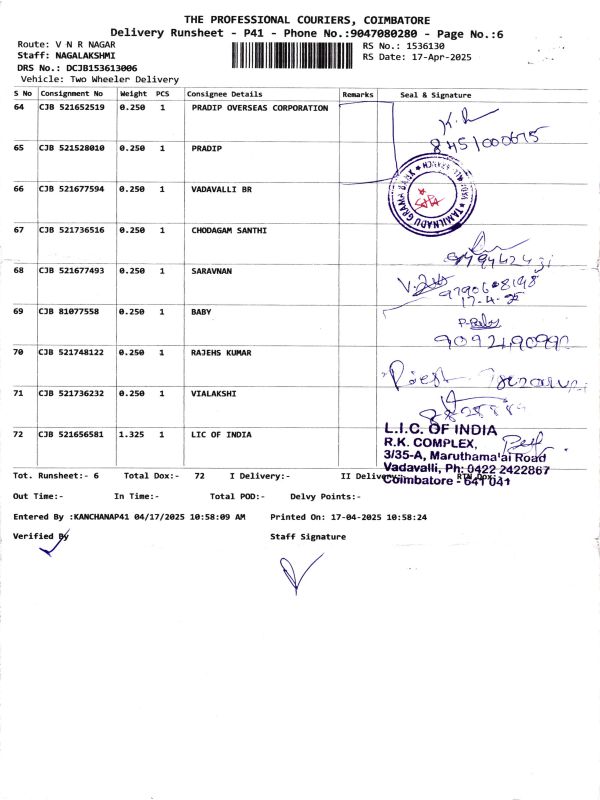 THE PROFESSIONAL COURIERS, COIMBATORE
Delivery Runsheet - P41 - Phone No.:9047080280 - Page No.:6
Route: V N R NAGAR RS No.: 1536130
Staff: NAGALAKSHMI RS Date: 17-Apr-2025
DRS No.: DCJB153613006
Vehicle: Two Wheeler Delivery
S No Consignment No Weight PCS Consignee Details Remarks Seal & Signature
64 CJB 521652519 0.250 1 PRADIP OVERSEAS CORPORATION
8451000675
65 CJB 521528010 0.250 1 PRADIP
66 CJB 521677594 0.250 1 VADAVALLI BR
TAMILNADU GRAMA BANK
67 CJB 521736516 0.250 1 CHODAGAM SANTHI
68 CJB 521677493 0.250 1 SARAVNAN
9790608198
17-4-25
69 CJB 81077558 0.250 1 BABY
70 CJB 521748122 0.250 1 RAJEHS KUMAR
71 CJB 521736232 0.250 1 VIALAKSHI
72 CJB 521656581 1.325 1 LIC OF INDIA
L.I.C. OF INDIA
R.K. COMPLEX,
3/35-A, Maruthamalai Road
Vadavalli, Ph: 0422 2422867
Coimbatore - 641 041
Tot. Runsheet:- 6 Total Dox:- 72 I Delivery:- II Delivery:- RTN Dox:-
Out Time:- In Time:- Total POD:- Delvy Points:-
Entered By :KANCHANAP41 04/17/2025 10:58:09 AM Printed On: 17-04-2025 10:58:24
Verified By Staff Signature